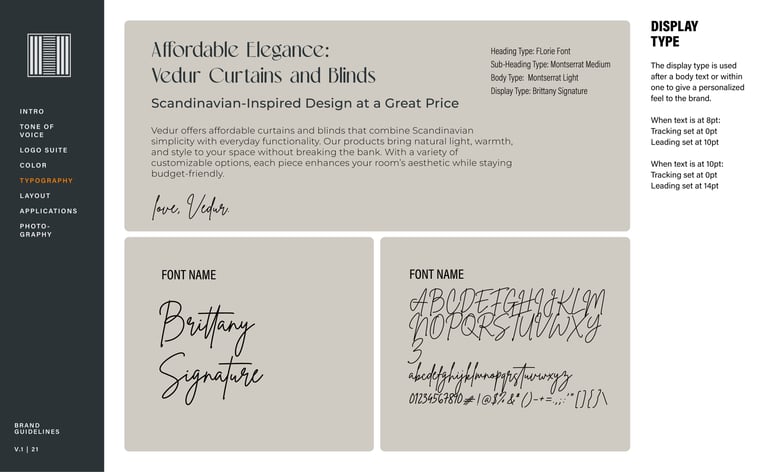 INTRO
TONE OF
VOICE
LOGO SUITE
COLOR
TYPOGRAPHY
LAYOUT
APPLICATIONS
PHOTO-
GRAPHY
BRAND
GUIDELINES
V.1 | 21
Affordable Elegance:
Vedur Curtains and Blinds
Scandinavian-Inspired Design at a Great Price
Vedur offers affordable curtains and blinds that combine Scandinavian
simplicity with everyday functionality. Our products bring natural light, warmth,
and style to your space without breaking the bank. With a variety of
customizable options, each piece enhances your room's aesthetic while staying
budget-friendly.
love, Vedur.
Heading Type: FLorie Font
Sub-Heading Type: Montserrat Medium
Body Type: Montserrat Light
Display Type: Brittany Signature
FONT NAME
Brittany
Signature
FONT NAME
ABCDEFGHIJKLM
NOPQRSTUVWXY
Z
abcdefghijklmnopqrstuvwxyz
01234567890#!@$%&*()-+=.,;:'"[]{}\
DISPLAY
TYPE
The display type is used
after a body text or within
one to give a personalized
feel to the brand.
When text is at 8pt:
Tracking set at 0pt
Leading set at 10pt
When text is at 10pt:
Tracking set at 0pt
Leading set at 14pt